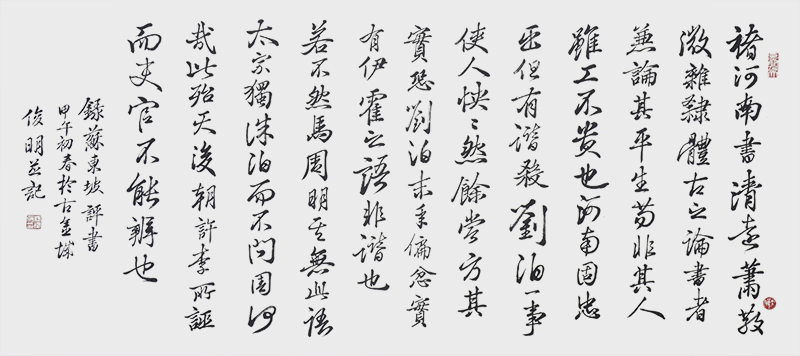 褚河南書清遠蕭散
微雜隸體古之論書者
兼論其平生苟非其人
雖工不貴也河南固忠
臣但有譖殺劉洎一事
使人怏〻然餘嘗考其
實恐劉洎末年偏忿實
有伊霍之語非譖也
若不然馬周明其無此語
太宗獨誅洎而不問周何
哉此殆天後朝許李所誣
而史官不能辨也
錄蘇東坡評書
甲午初春於古金城
俊明並記